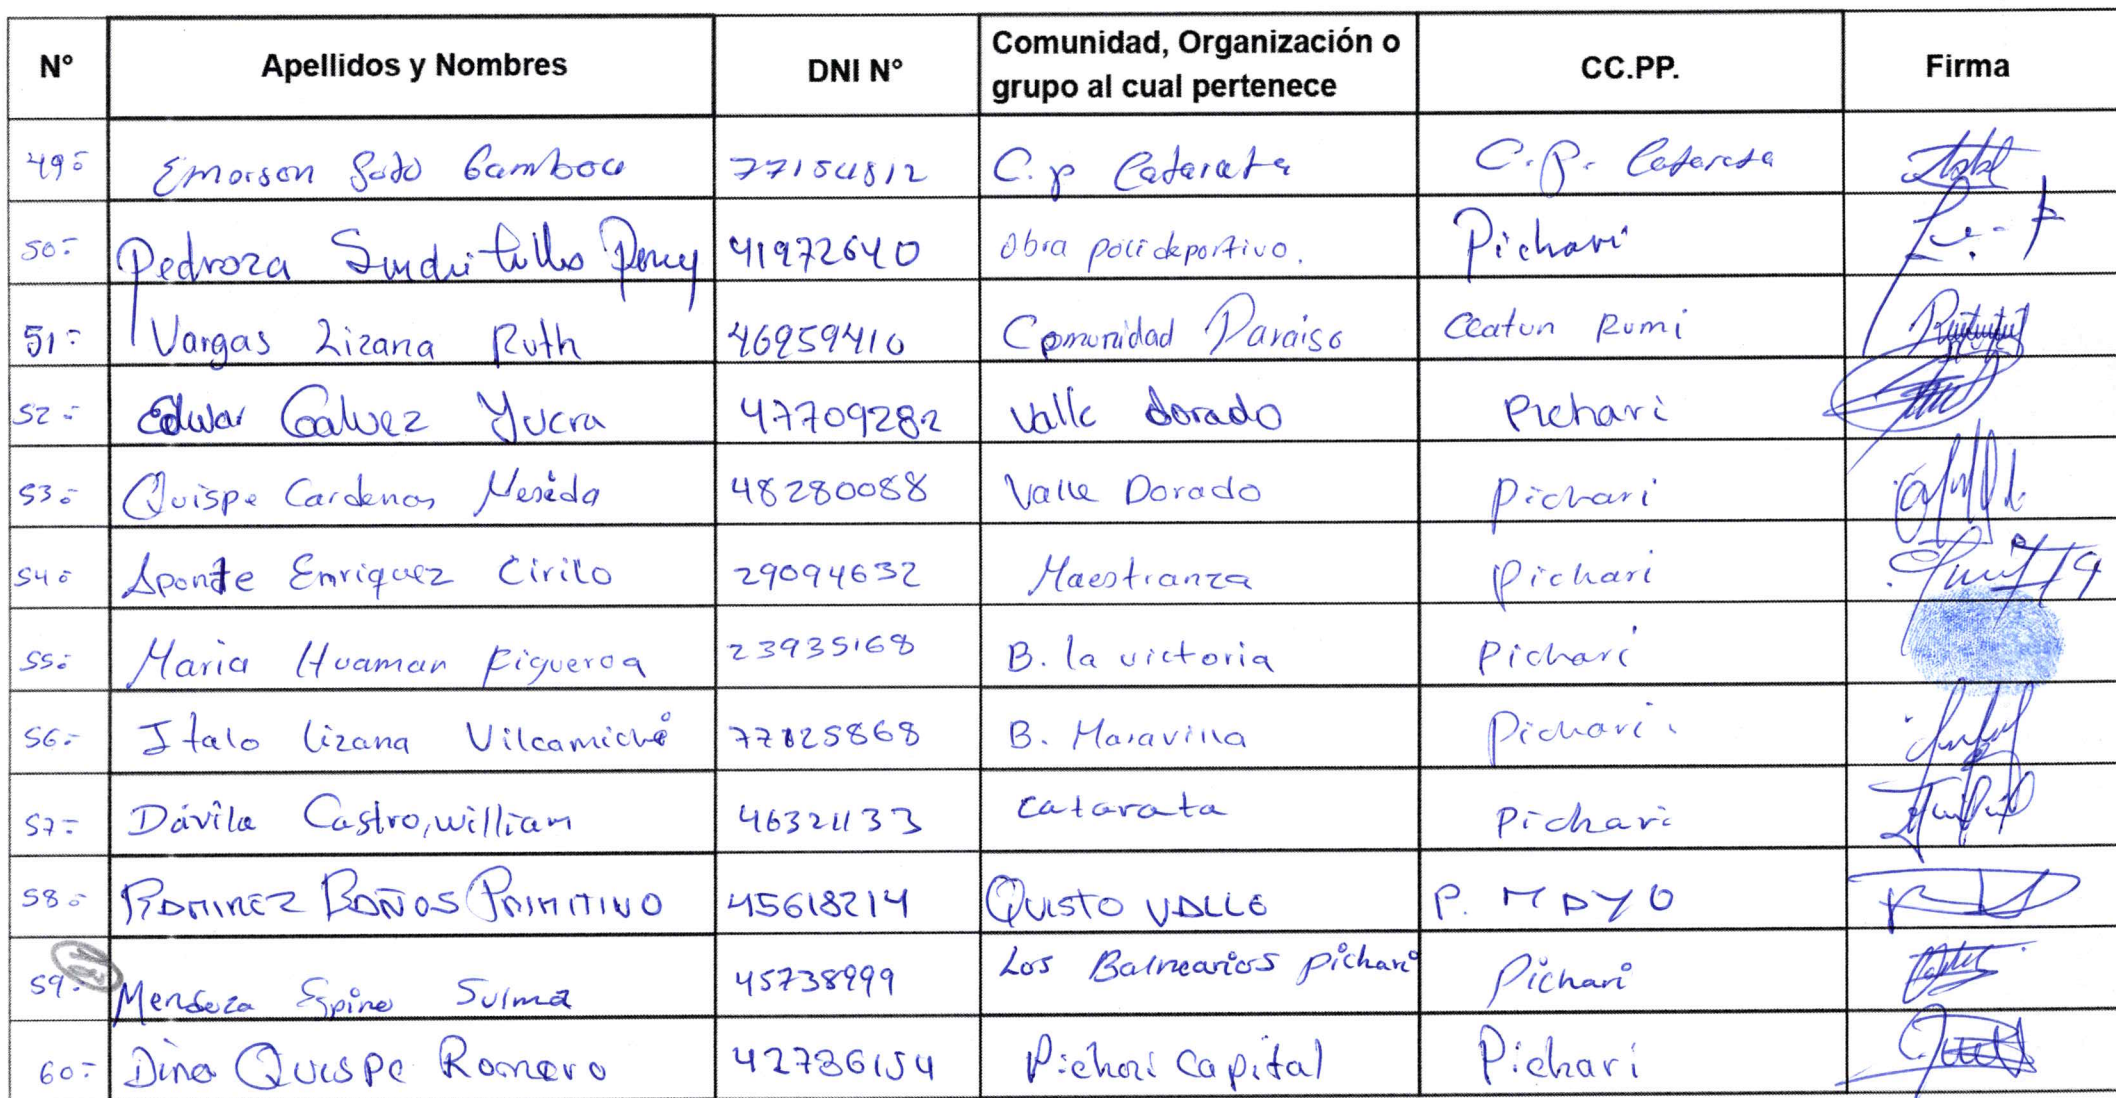 N° Apellidos y Nombres DNI N° Comunidad, Organización o grupo al cual pertenece CC.PP. Firma
49.- Emorson Soto Gamboa 77154812 C.p Catarata C.P. Catarata
50.- Pedroza Percy 41972640 Obra polideportivo. Pichari
51.- Vargas Lizana Ruth 46959410 Comunidad Paraiso Ccatun Rumi
52.- Edwar Galvez Yucra 47709282 Valle dorado Pichari
53.- Quispe Cardenas Neseda 48280088 Valle Dorado Pichari
54.- Aponte Enriquez Cirilo 29094632 Maestranza Pichari
55.- Maria Huaman Figueroa 23935168 B. la victoria Pichari
56.- Italo Lizana Vilcamiche 77825868 B. Maravilla Pichari.
57.- Dávila Castro, willian 46321133 Catarata Pichari
58.- RAMIREZ BAÑOS PRIMITIVO 45618214 QUISTO VALLE P. MAYO
59.- Mendoza Espino Sulma 45738999 Los Balnearios pichari Pichari
60.- Dina Quispe Romero 42786154 Pichari Capital Pichari